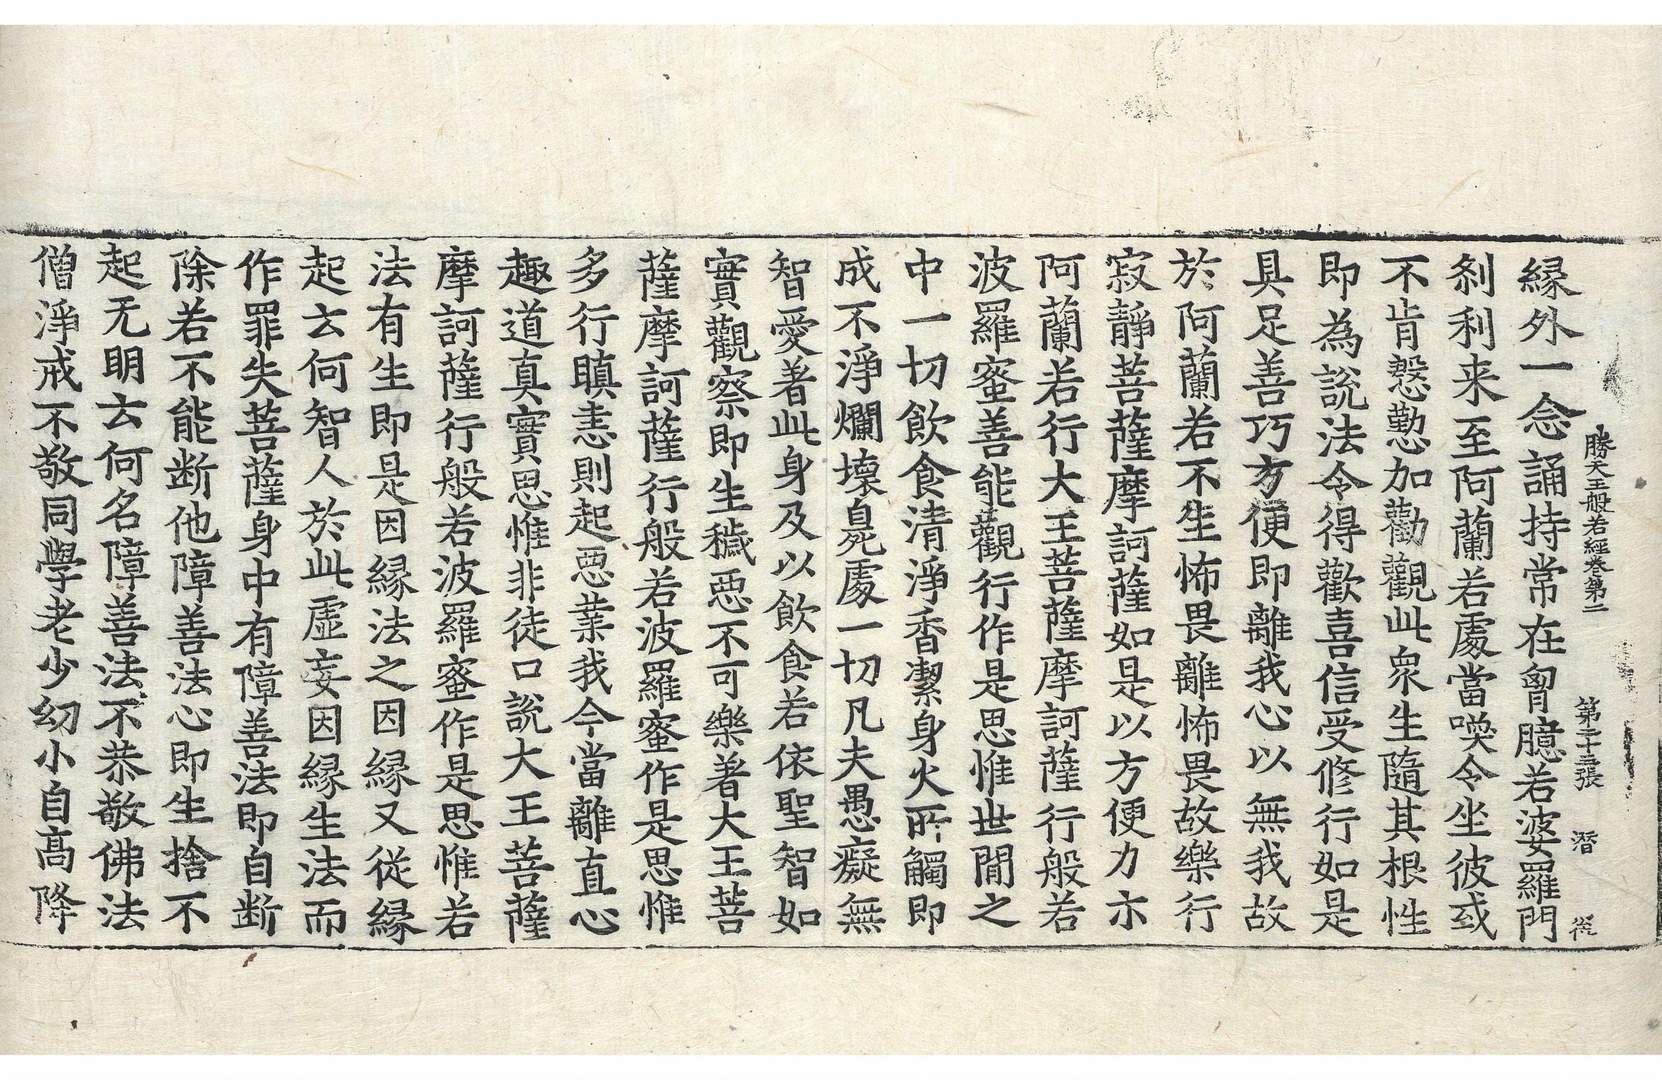 勝天王般若經卷第二　第二十三張　潛
緣外一念誦持常在胷臆若婆羅門
剎利来至阿蘭若處當喚令坐彼或
不肯慇懃加勸觀此眾生隨其根性
即為說法令得歡喜信受修行如是
具足善巧方便即離我心以無我故
於阿蘭若不生怖畏離怖畏故樂行
寂靜菩薩摩訶薩如是以方便力亦
阿蘭若行大王菩薩摩訶薩行般若
波羅蜜善能觀行作是思惟世間之
中一切飲食清淨香潔身火所觸即
成不淨爛壞臭處一切凡夫愚癡無
智愛著此身及以飲食若依聖智如
實觀察即生穢惡不可樂著大王菩
薩摩訶薩行般若波羅蜜作是思惟
多行瞋恚則起惡業我今當離直心
趣道真實思惟非徒口說大王菩薩
摩訶薩行般若波羅蜜作是思惟若
法有生即是因緣法之因緣又從緣
起云何智人於此虛妄因緣生法而
作罪失菩薩身中有障善法即自断
除若不能断他障善法心即生捨不
起无明云何名障善法不恭敬佛法
僧淨戒不敬同學老少幼小自高降